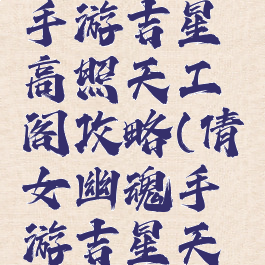 手游吉星
高照天工
阁攻略(倩
女幽魂手
游吉星天